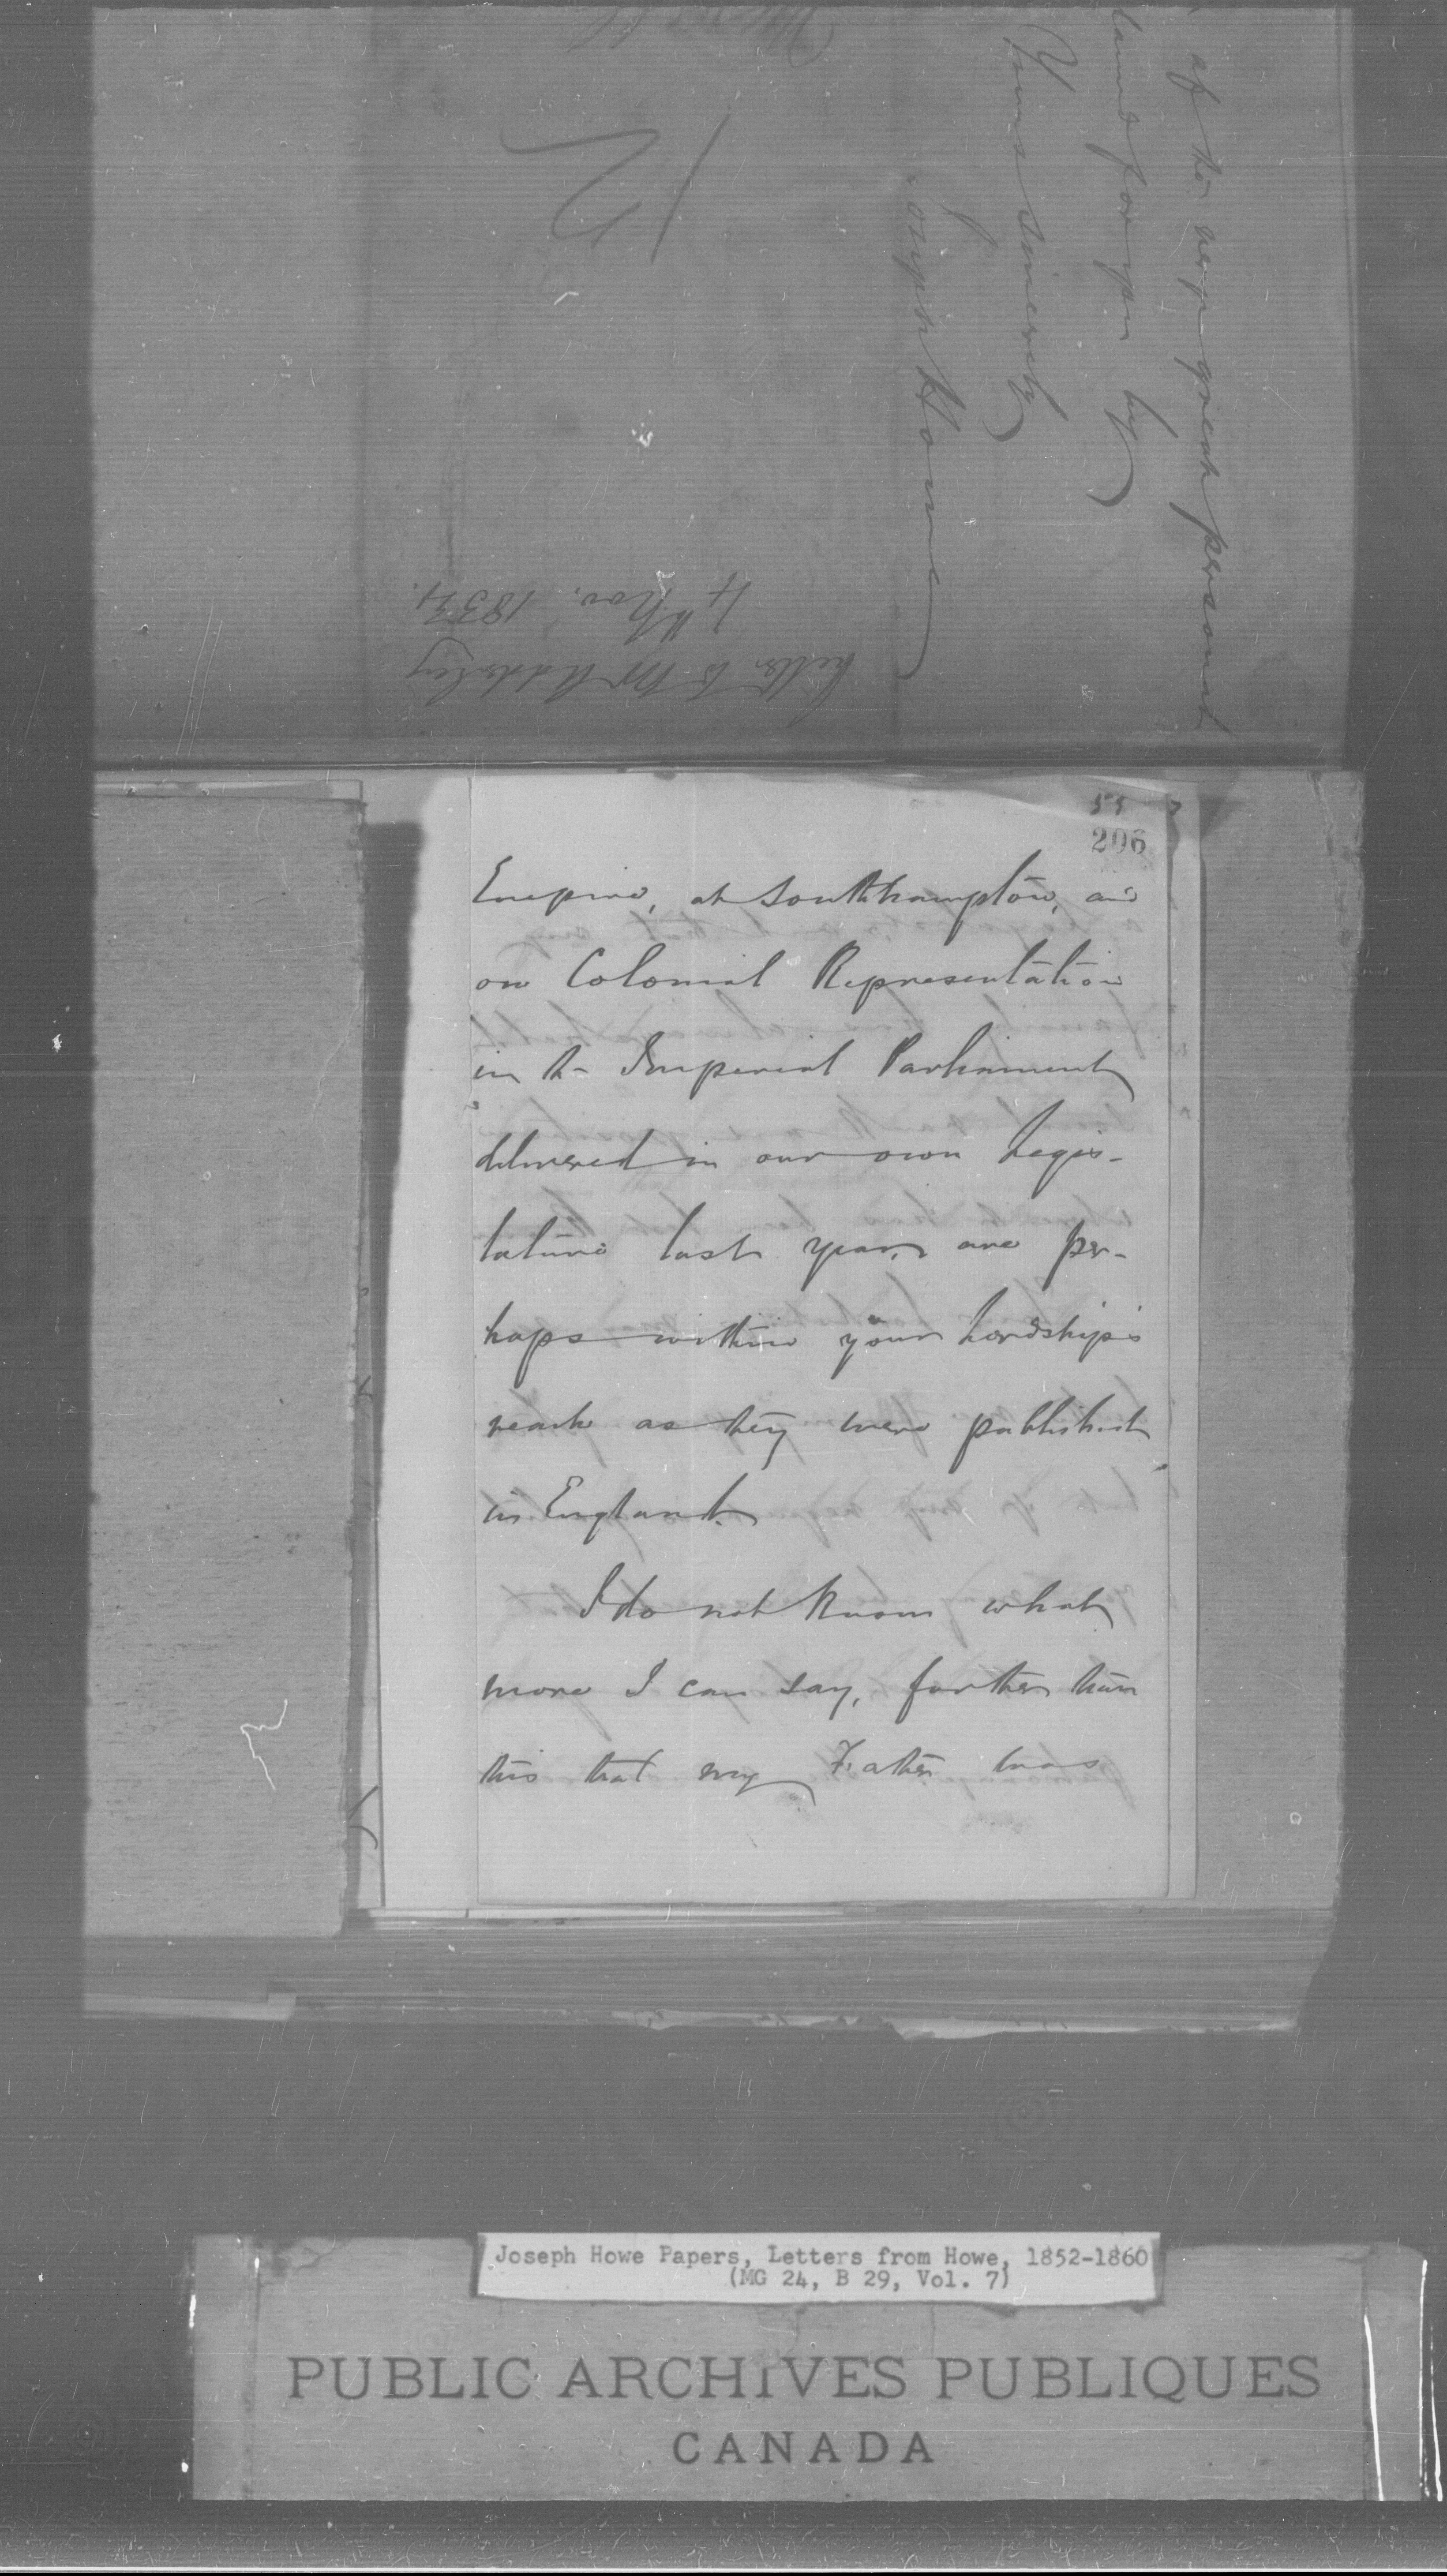 of the very great personal
for you by
Yours sincerely
Joseph Howe
Letter to Mr Adderley
4th Nov. 1854.
55
206
Empire, at Southhampton, and
on Colonial Representation
in the Imperial Parliament
delivered in our own Legis-
lature last year, are per-
haps within your Lordship's
reach as they were published
in England.
I do not know what
more I can say, further than
this that my Father was
Joseph Howe Papers, Letters from Howe, 1852-1860
(MG 24, B 29, Vol. 7)
PUBLIC ARCHIVES PUBLIQUES
CANADA